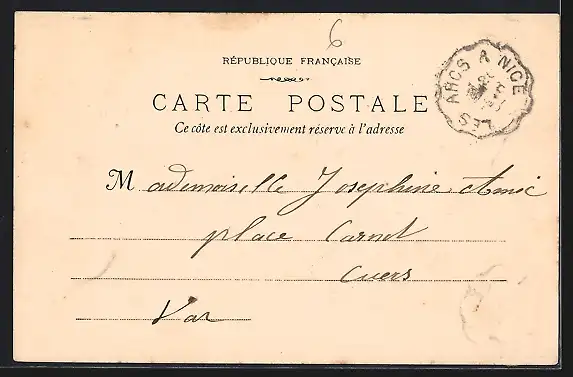 6
RÉPUBLIQUE FRANÇAISE
CARTE POSTALE
Ce côte est exclusivement réserve à l'adresse
LES ARCS A NICE
Mademoiselle Josephine Amic
place Carnot
Cuers
Var